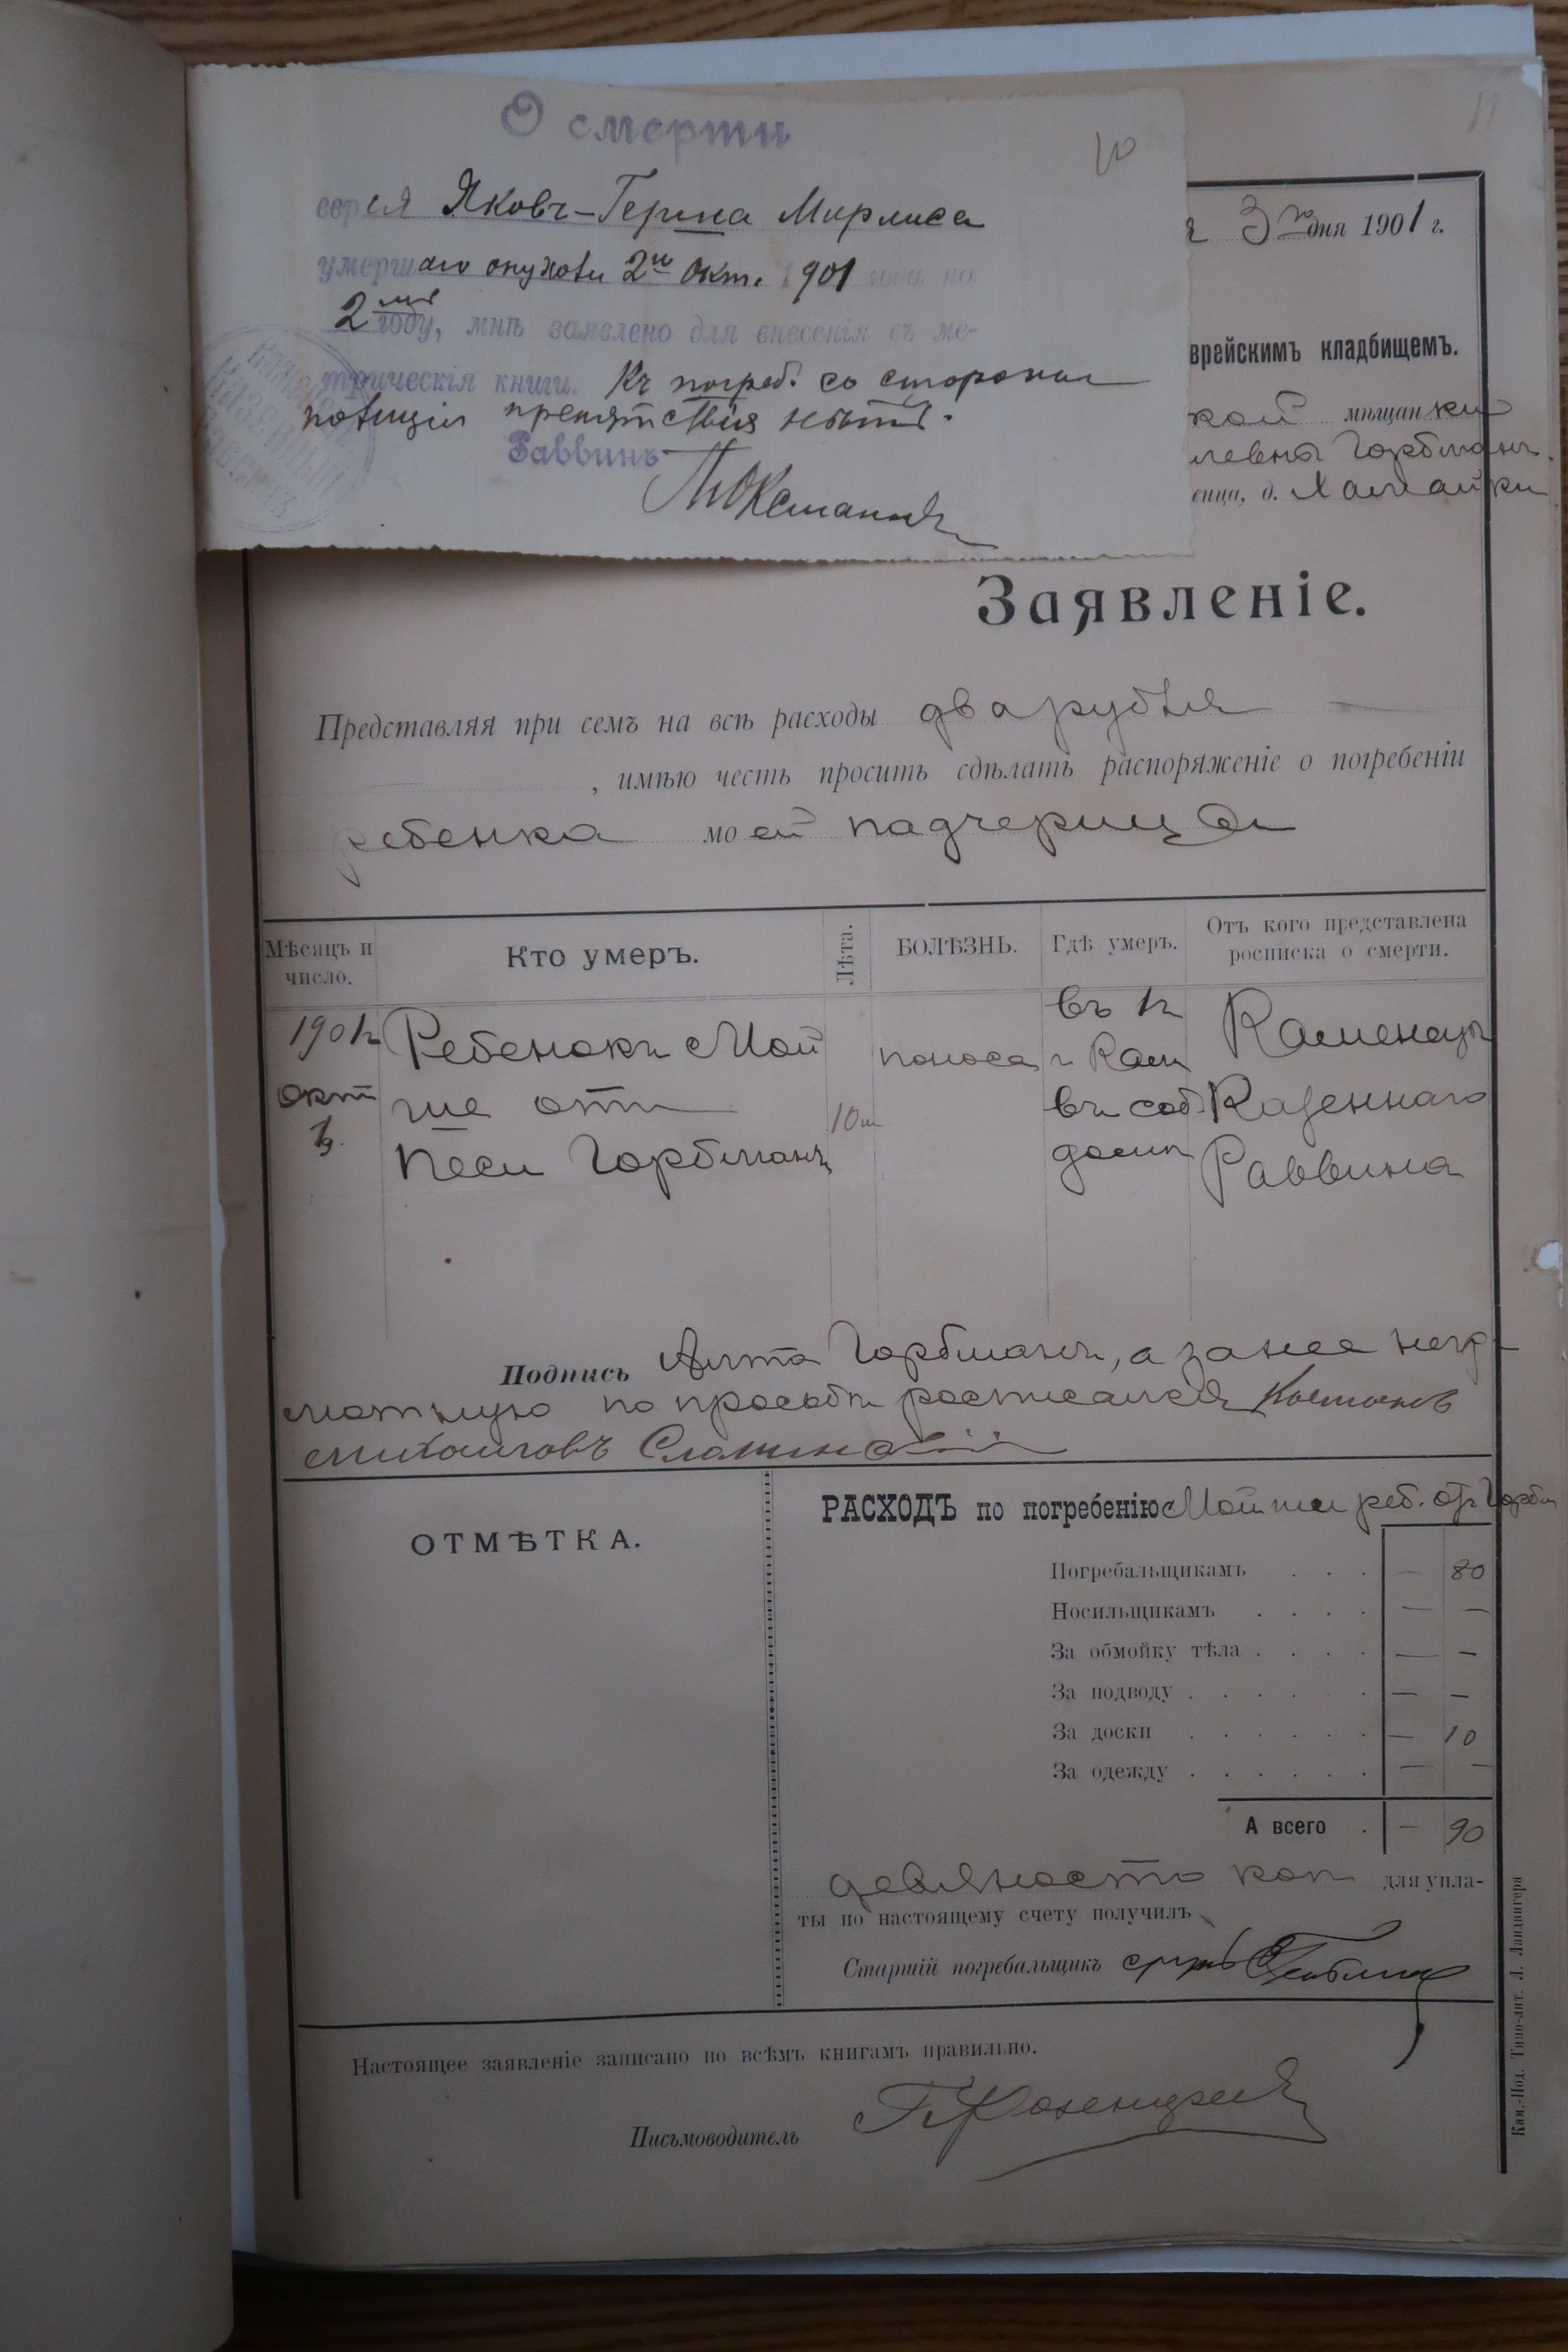 О смерти
10
11
еврея Яковъ-Герша Мирлиса
умершаго опухоли 2го Окт. 1901 года на
2мъ году, мнѣ заявлено для внесенія въ ме-
трическія книги. Къ погреб. со стороны
полиціи препятствія нѣтъ.
Раввинъ
3го дня 1901 г.
врейскимъ кладбищемъ.
кой мѣщанки
левна Горбманъ.
енца, д.
Заявленіе.
Представляя при семъ на всѣ расходы два рубля
, имѣю честь просить сдѣлать распоряженіе о погребеніи
ребенка моей падчерицы
Мѣсяцъ и число.
Кто умеръ.
Лѣта.
БОЛѢЗНЬ.
Гдѣ умеръ.
Отъ кого представлена росписка о смерти.
1901г
окт
3.
Ребенокъ Мой
ше отъ
Песи Горбманъ
10м
поноса
въ
г Кам
въ соб
домѣ
Каменецъ
Казеннаго
Раввина
Подпись Алта Горбманъ, а за нее негра
мотную по просьбѣ росписался
Михаиловъ
ОТМѢТКА.
РАСХОДЪ по погребенію Мойши реб. отъ Горбм
Погребальщикамъ . . . — 80
Носильщикамъ . . . . — —
За обмойку тѣла . . . . — —
За подводу . . . . . . — —
За доски . . . . . . — 10
За одежду . . . . . . — —
А всего . — 90
девяносто коп для упла-
ты по настоящему счету получилъ
Старшій погребальщикъ
Настоящее заявленіе записано по всѣмъ книгамъ правильно.
Письмоводитель
Кам.-Под. Типо-лит. Л. Ландвигера